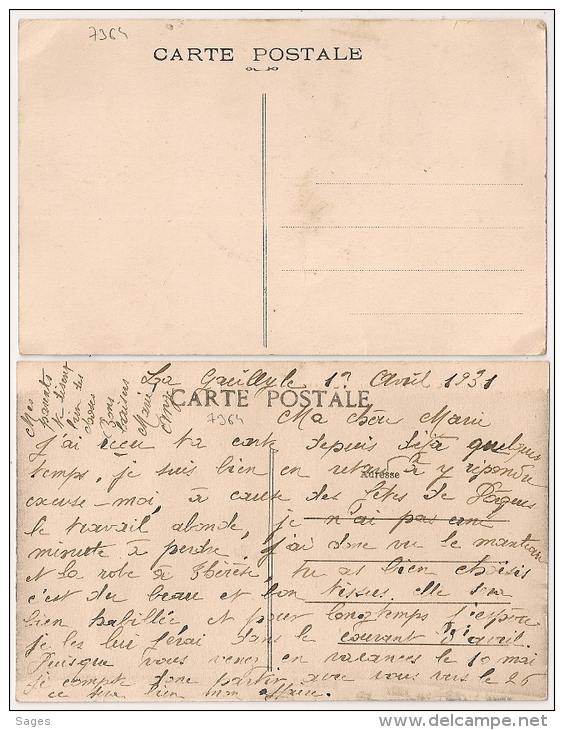 7964
CARTE POSTALE
La Gacilly le 1? Avril 1931
CARTE POSTALE
7964
Ma chère Marie
J'ai reçu ta carte depuis déjà quelques
temps, je suis bien en retard à y répondre
Adresse
excuse-moi, à cause des fêtes de Pâques
le travail abonde, je n'ai pas une
minute à perdre. J'ai donc vu le manteau
et la robe à Thérèse, tu as bien choisis
c'est du beau et bon tissus. elle sera
bien habillée et pour longtemps j'espère
je les lui ferai dans le courant d'avril.
Puisque vous venez en vacances le 10 mai
je compte donc partir avec vous vers le 26
ce sera bien mon affaire.
Mes
parents
te disent
bien des
choses
Bons
baisers
Marie
Sages
www.delcampe.net